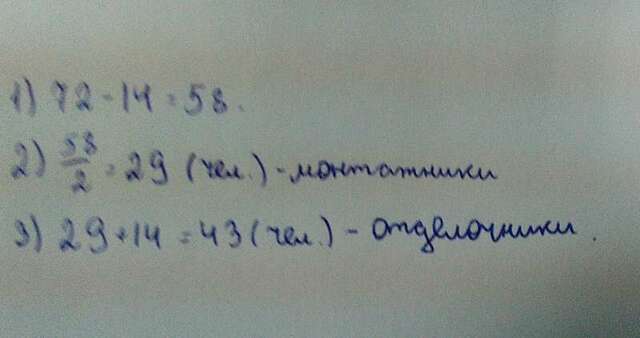 1) 72 - 14 = 58.
2) 58/2 = 29 (чел.) - монтажники
3) 29 + 14 = 43 (чел.) - отделочники.